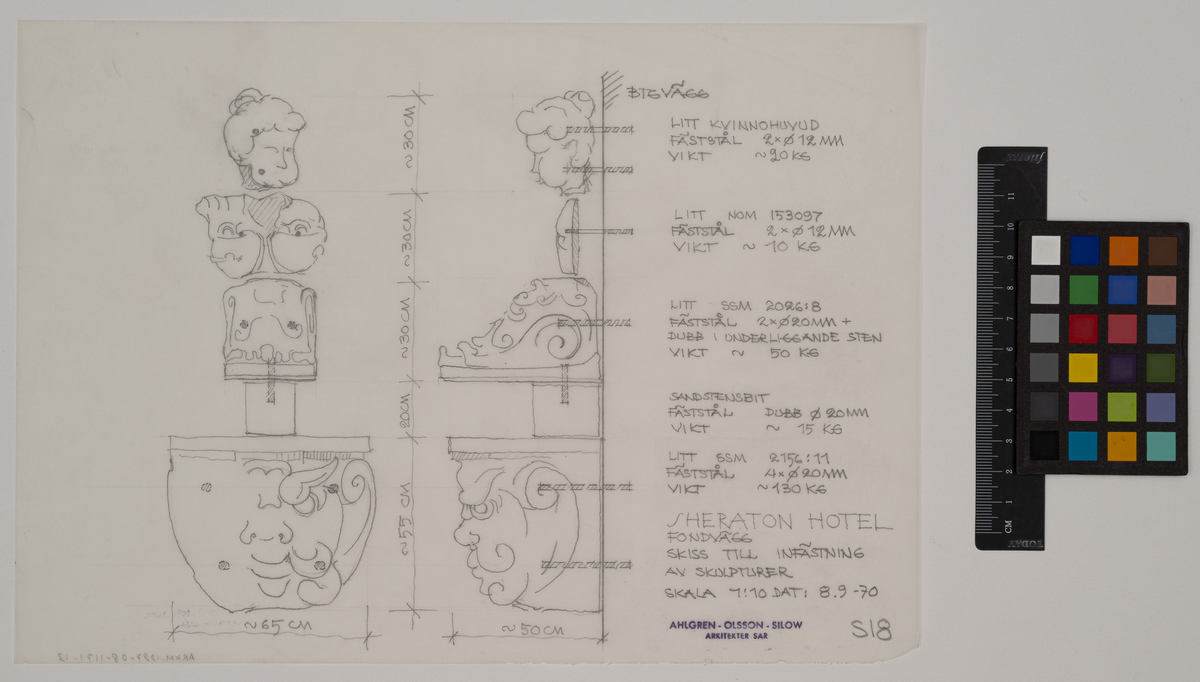 BTGVÄGG
LITT KVINNOHUVUD
FÄSTSTÅL 2×Ø12MM
VIKT ~20 KG
LITT NOM 153097
FÄSTSTÅL 2×Ø12MM
VIKT ~ 10 KG
LITT SSM 2026:8
FÄSTSTÅL 2×Ø20MM +
DUBB I UNDERLIGGANDE STEN
VIKT ~ 50 KG
SANDSTENSBIT
FÄSTSTÅL DUBB Ø 20MM
VIKT ~ 15 KG
LITT SSM 2156:11
FÄSTSTÅL 4×Ø20MM
VIKT ~130 KG
SHERATON HOTEL
FONDVÄGG
SKISS TILL INFÄSTNING
AV SKULPTURER
SKALA 1:10 DAT: 8.9-70
AHLGREN - OLSSON - SILOW
ARKITEKTER SAR
S18
~30CM
~30CM
~30CM
20CM
~55 CM
~65 CM
~50CM
11
10
9
8
7
6
5
4
3
2
1
CM